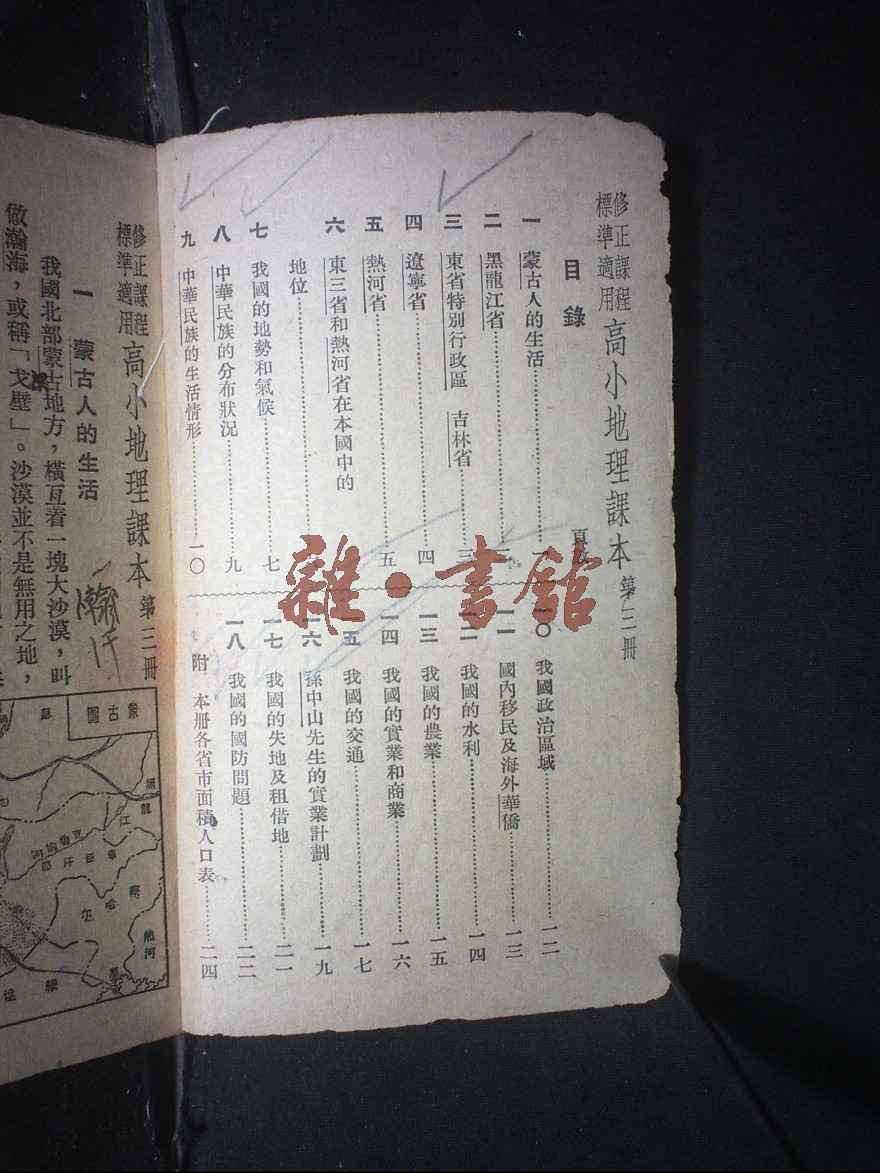 修正課程標準適用 高小地理課本 第三冊
目錄 頁數
一 蒙古人的生活
二 黑龍江省
三 東省特別行政區 吉林省……三
四 遼寧省……四
五 熱河省……五
六 東三省和熱河省在本國中的
地位
七 我國的地勢和氣候……七
八 中華民族的分布狀況……九
九 中華民族的生活情形……一〇
一〇 我國政治區域……一二
一一 國內移民及海外華僑……一三
一二 我國的水利……一四
一三 我國的農業……一五
一四 我國的實業和商業……一六
一五 我國的交通……一七
一六 孫中山先生的實業計劃……一九
一七 我國的失地及租借地……二一
一八 我國的國防問題……二二
附 本册各省市面積人口表……二四
雜·書館
修正課程標準適用 高小地理課本 第三冊
一 蒙古人的生活
我國北部蒙古地方，橫亙着一塊大沙漠，叫
做瀚海，或稱「戈壁」。沙漠並不是無用之地，
瀚
蒙古圖
黑龍江
克魯倫河
車臣汗部
察哈爾
熱河
綏遠